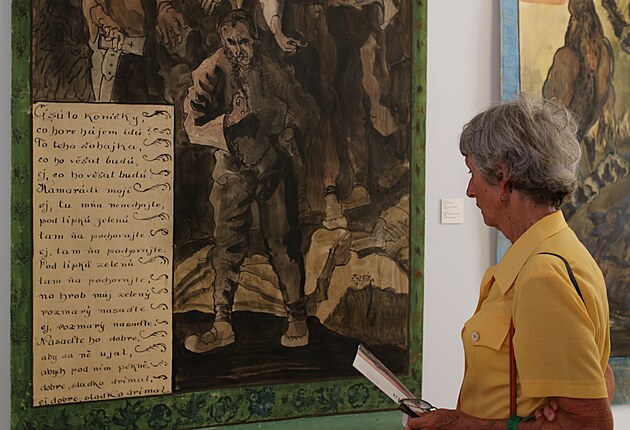 Čí sú to koníčky,
co hore hájem idú?
To teho šohajka,
co ho věšat budú,
ej, co ho věšat budú.
Kamarádi moji
ej, tu mňa nenechajte,
pod lipkú zelenú
tam ňa pochovajte
ej, tam ňa pochovajte.
Pod lipkú zelenú
tam ňa pochovajte,
na hrob můj zelený
rozmarý nasaďte
ej, rozmarý nasaďte.
Nasaďte ho dobre,
aby sa ně ujal,
abych pod ním pěkně,
dobre, sladko dřímal,
ej, dobre, sladko dřímal.